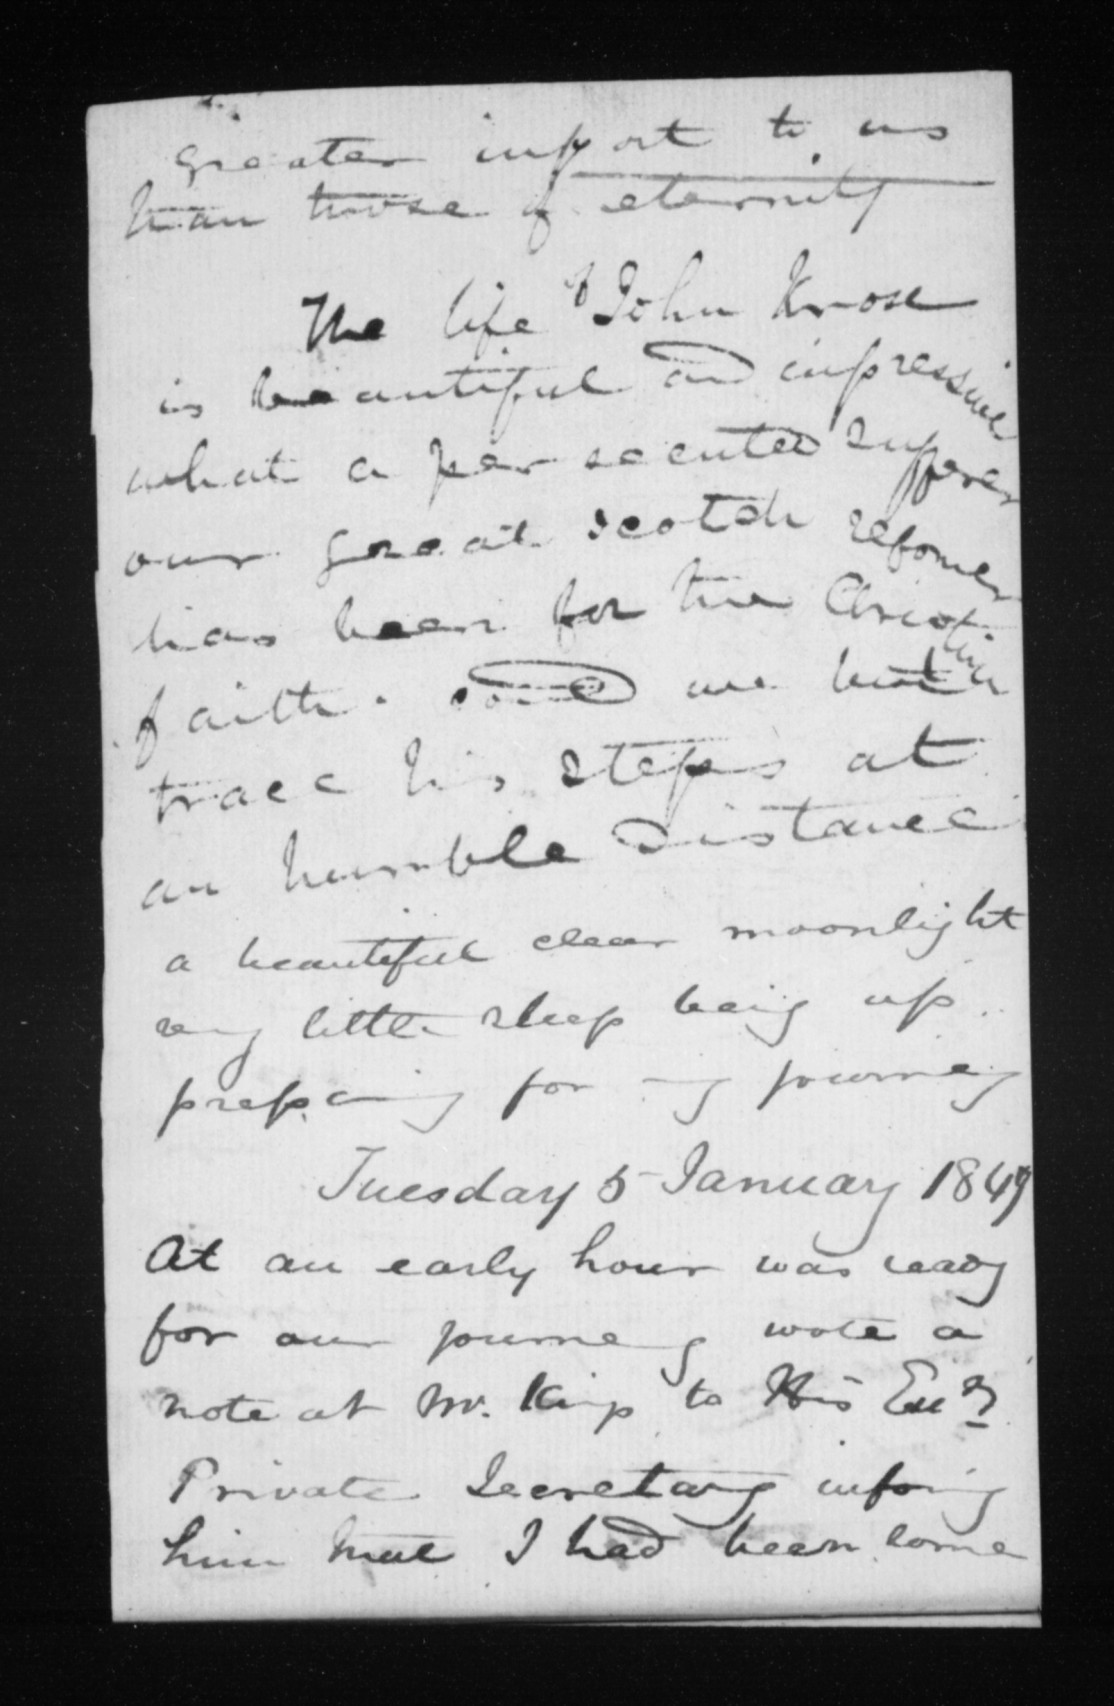 greater import to us
than those of eternity
The life of John Knox
is beautiful and impressive
what a persecuted sufferer
our great scotch reformer
has been for the Christian
faith. and we but
trace his steps at
an humble distance
a beautiful clear moonlight
very little sleep being up
preparing for my journey
Tuesday 5 January 1849
At an early hour was ready
for our journey wrote a
note at Mr. King to His Exy
Private Secretary informing
him that I had been some